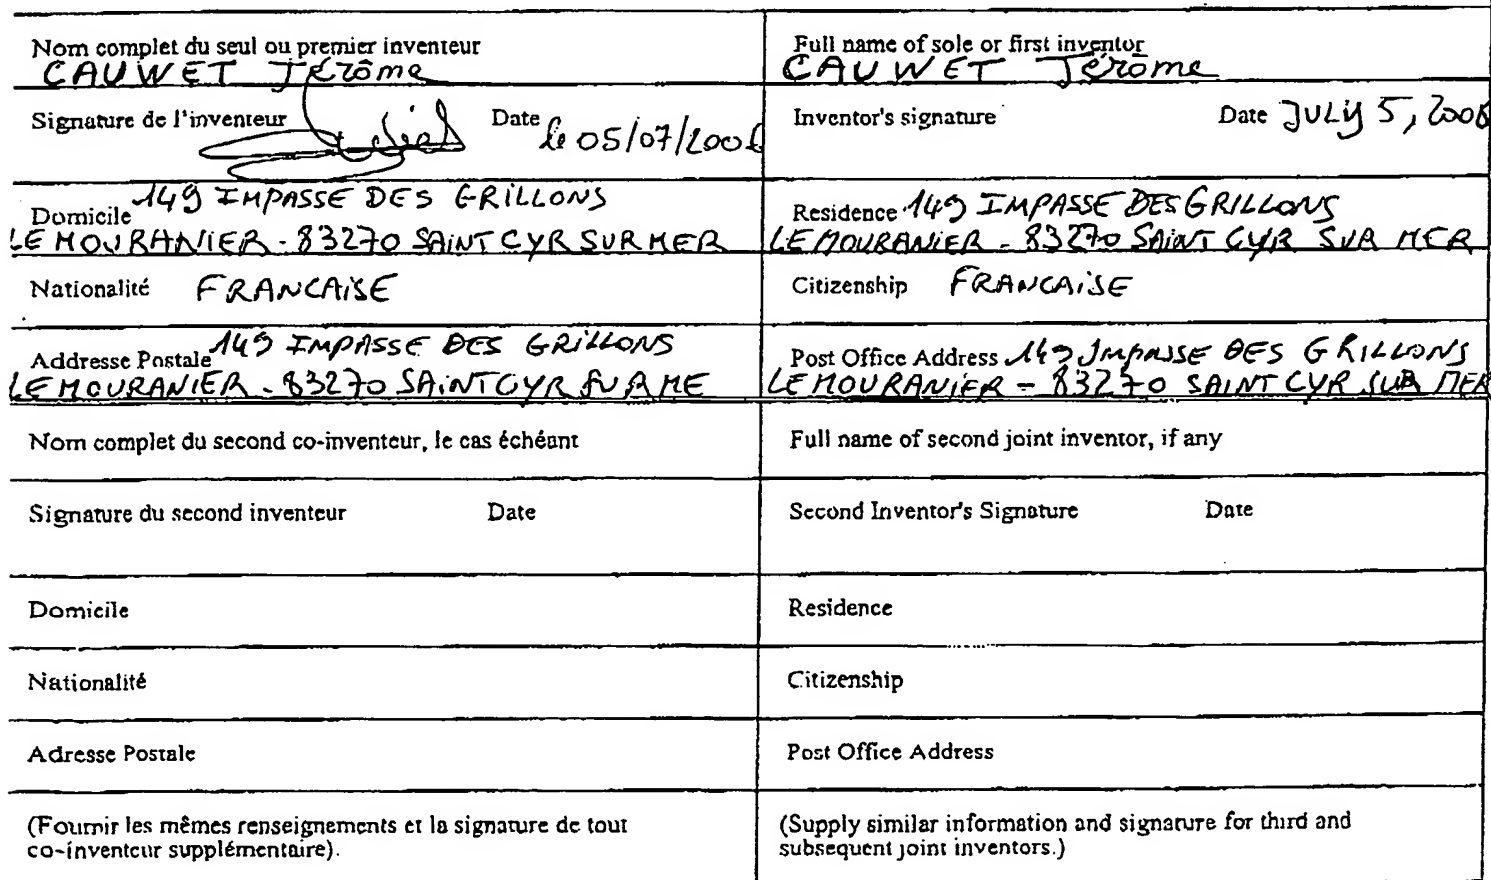 Nom complet du seul ou premier inventeur
CAUWET Jérôme
Full name of sole or first inventor
CAUWET Jérôme
Signature de l'inventeur Date le 05/07/2006
Inventor's signature Date JULY 5, 2006
149 IMPASSE DES GRILLONS
Domicile
LE MOURANIER - 83270 SAINT CYR SUR MER
Residence 149 IMPASSE DES GRILLONS
LE MOURANIER - 83270 SAINT CYR SUR MER
Nationalité FRANCAISE
Citizenship FRANCAISE
Addresse Postale 149 IMPASSE DES GRILLONS
LE MOURANIER - 83270 SAINT CYR SUR ME
Post Office Address 149 IMPASSE DES GRILLONS
LE MOURANIER - 83270 SAINT CYR SUR MER
Nom complet du second co-inventeur, le cas échéant
Full name of second joint inventor, if any
Signature du second inventeur Date
Second Inventor's Signature Date
Domicile
Residence
Nationalité
Citizenship
Adresse Postale
Post Office Address
(Fournir les mêmes renseignements et la signature de tout
co-inventeur supplémentaire).
(Supply similar information and signature for third and
subsequent joint inventors.)